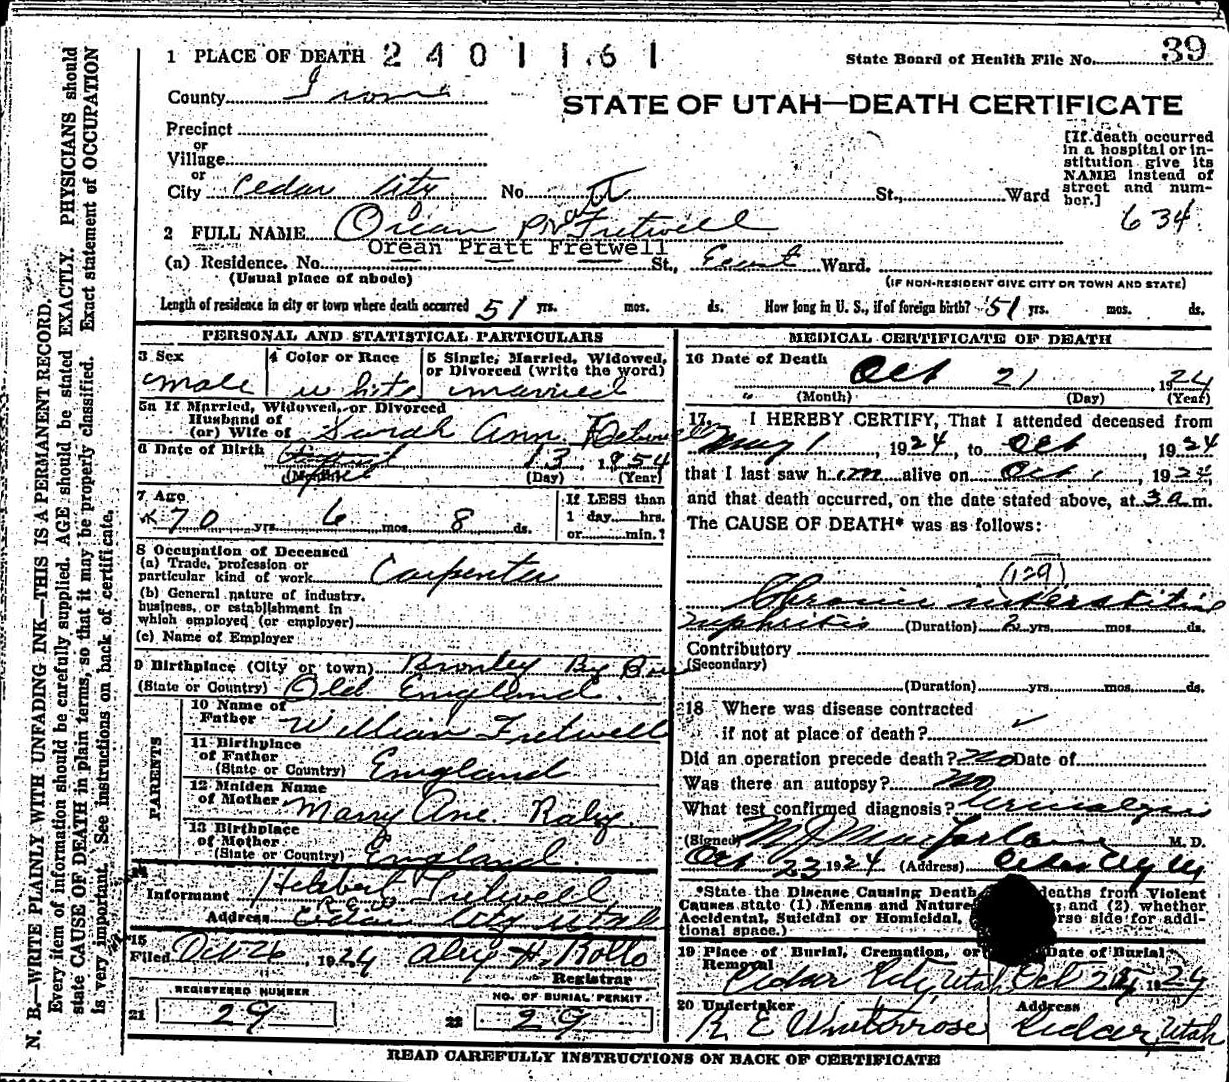 1 PLACE OF DEATH 2401161
State Board of Health File No. 39
County Iron
STATE OF UTAH—DEATH CERTIFICATE
Precinct
or
Village
or
City Cedar City No. St., Ward
[If death occurred
in a hospital or in-
stitution give its
NAME instead of
street and num-
ber.]
634
2 FULL NAME Orean Pratt Fretwell
Orean Pratt Fretwell
(a) Residence. No. St., Ward.
(Usual place of abode)
(IF NON-RESIDENT GIVE CITY OR TOWN AND STATE)
Length of residence in city or town where death occurred 51 yrs. mos. ds. How long in U. S., if of foreign birth? 51 yrs. mos. ds.
PERSONAL AND STATISTICAL PARTICULARS
3 Sex
male
4 Color or Race
white
5 Single, Married, Widowed,
or Divorced (write the word)
married
5a If Married, Widowed, or Divorced
Husband of
(or) Wife of Sarah Ann
6 Date of Birth 13, 1854
(Month) (Day) (Year)
7 Age
70 yrs. 6 mos. 8 ds.
If LESS than
1 day hrs.
or min.?
8 Occupation of Deceased
(a) Trade, profession or
particular kind of work Carpenter
(b) General nature of industry,
business, or establishment in
which employed (or employer)
(c) Name of Employer
9 Birthplace (City or town)
(State or Country) Old England.
PARENTS
10 Name of
Father William Fretwell
11 Birthplace
of Father
(State or Country) England
12 Maiden Name
of Mother Marry Ane. Raby.
13 Birthplace
of Mother
(State or Country) England
14
Informant Fretwell
Address Cedar City Utah
15
Filed Oct 26, 1924 H. Rollo
Registrar
REGISTERED NUMBER
21 29
NO. OF BURIAL PERMIT
22 29
MEDICAL CERTIFICATE OF DEATH
16 Date of Death
Oct 21 1924
(Month) (Day) (Year)
17. I HEREBY CERTIFY, That I attended deceased from
May 1, 1924, to Oct, 1924
that I last saw him alive on Oct 1, 1924,
and that death occurred, on the date stated above, at 3 a m.
The CAUSE OF DEATH* was as follows:
(129)
Chronic interstitial
nephritis (Duration) 2 yrs. mos. ds.
Contributory
(Secondary)
(Duration) yrs. mos. ds.
18 Where was disease contracted
if not at place of death?
Did an operation precede death? no Date of
Was there an autopsy? no
What test confirmed diagnosis? urinalysis
(Signed) M J Macfarlane M. D.
Oct 23 1924 (Address) Cedar City Ut
*State the Disease Causing Death, deaths from Violent
Causes state (1) Means and Nature; and (2) whether
Accidental, Suicidal or Homicidal. side for addi-
tional space.)
19 Place of Burial, Cremation, or
Removal
Cedar City, Utah
Date of Burial
Oct 1924
20 Undertaker
R. E. Winterrose
Address
Cedar, Utah
READ CAREFULLY INSTRUCTIONS ON BACK OF CERTIFICATE
N. B.—WRITE PLAINLY WITH UNFADING INK—THIS IS A PERMANENT RECORD.
Every item of information should be carefully supplied. AGE should be stated EXACTLY. PHYSICIANS should
state CAUSE OF DEATH in plain terms, so that it may be properly classified. Exact statement of OCCUPATION
is very important. See instructions on back of certificate.